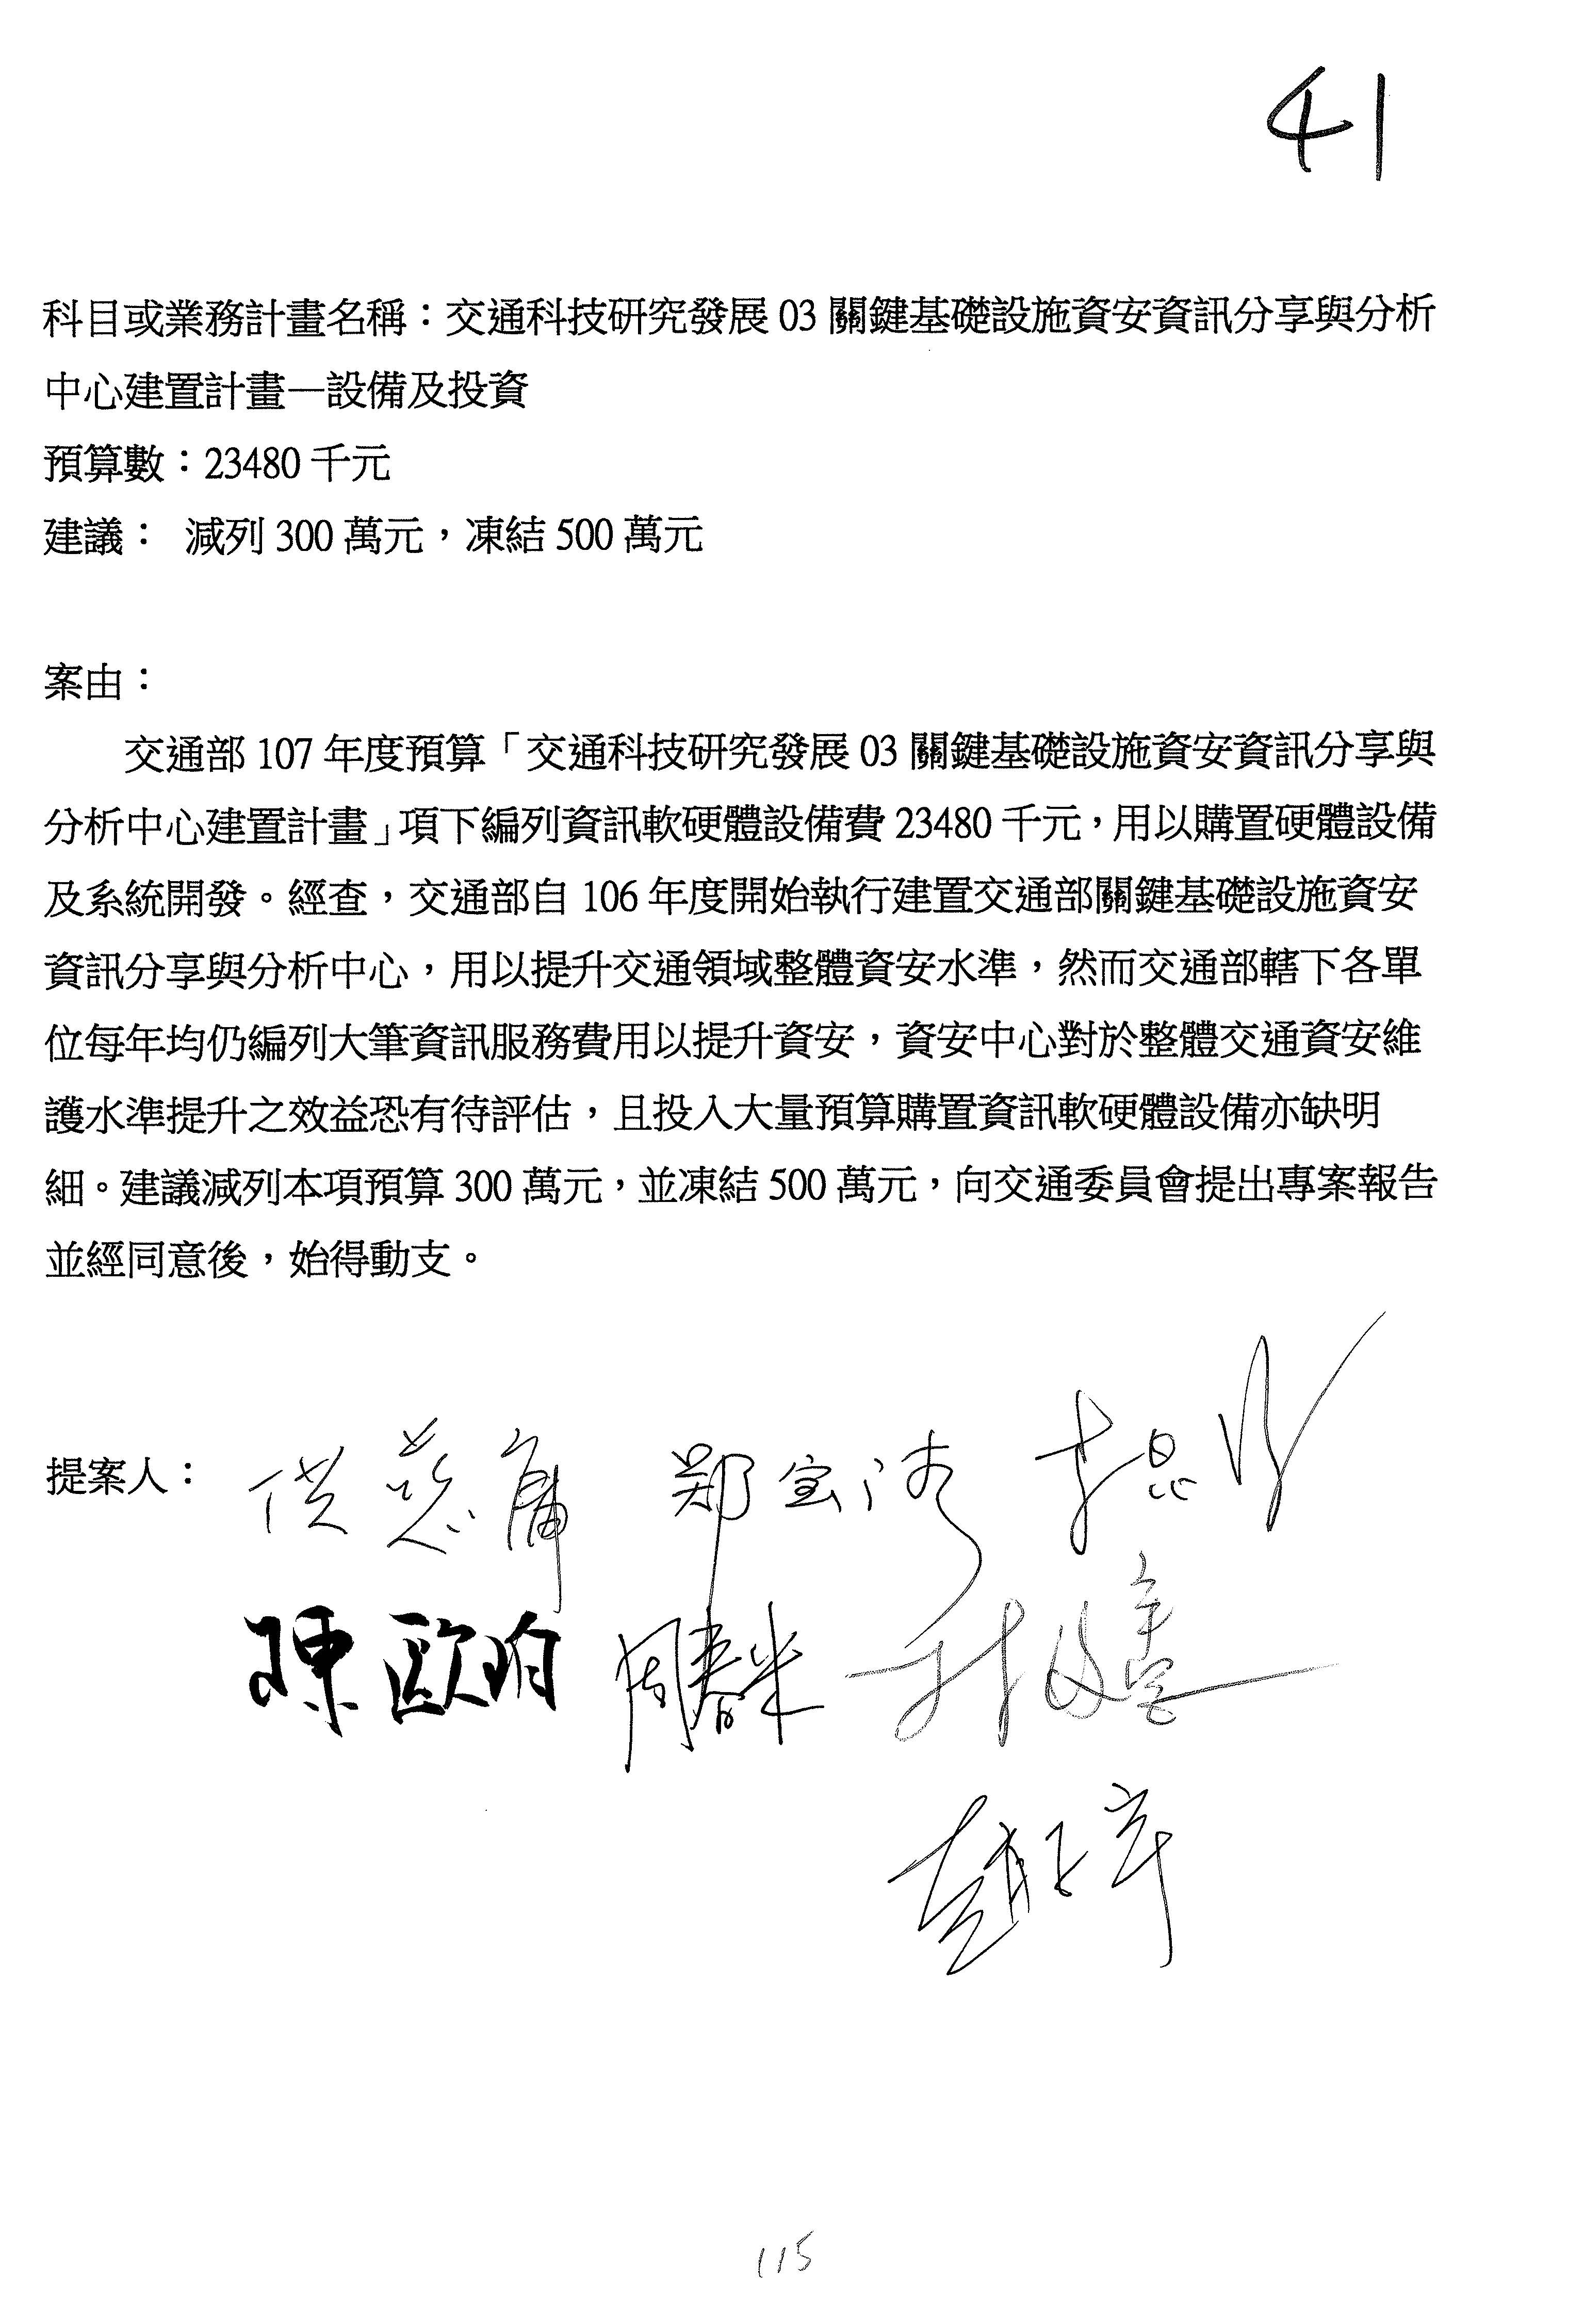 41
科目或業務計畫名稱：交通科技研究發展 03 關鍵基礎設施資安資訊分享與分析
中心建置計畫—設備及投資
預算數：23480 千元
建議： 減列 300 萬元，凍結 500 萬元
案由：
交通部 107 年度預算「交通科技研究發展 03 關鍵基礎設施資安資訊分享與
分析中心建置計畫」項下編列資訊軟硬體設備費 23480 千元，用以購置硬體設備
及系統開發。經查，交通部自 106 年度開始執行建置交通部關鍵基礎設施資安
資訊分享與分析中心，用以提升交通領域整體資安水準，然而交通部轄下各單
位每年均仍編列大筆資訊服務費用以提升資安，資安中心對於整體交通資安維
護水準提升之效益恐有待評估，且投入大量預算購置資訊軟硬體設備亦缺明
細。建議減列本項預算 300 萬元，並凍結 500 萬元，向交通委員會提出專案報告
並經同意後，始得動支。
提案人： 洪慈庸 鄭宝清
陳歐珀 周春米
趙正宇
115